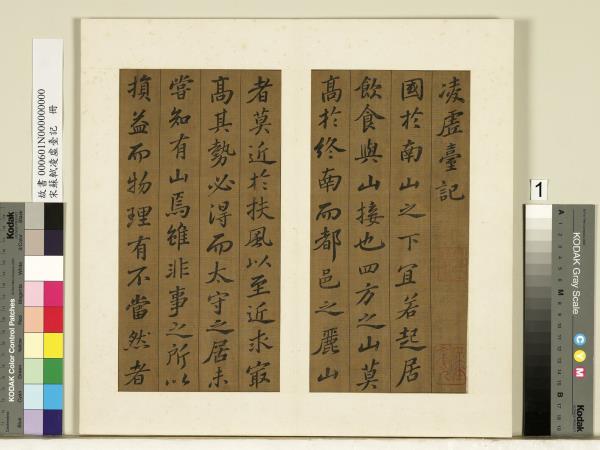 凌虛臺記
國於南山之下宜若起居
飲食與山接也四方之山莫
高於終南而都邑之麗山
者莫近於扶風以至近求㝡
高其勢必得而太守之居未
嘗知有山焉雖非事之所以
損益而物理有不當然者
故書000601N000000000
宋蘇軾凌虛臺記 冊
1
Kodak
KODAK Color Control Patches
KODAK Gray Scale
C Y M
Kodak
A 1 2 3 4 5 6 M 8 9 10 11 12 13 14 15 B 17 18 19